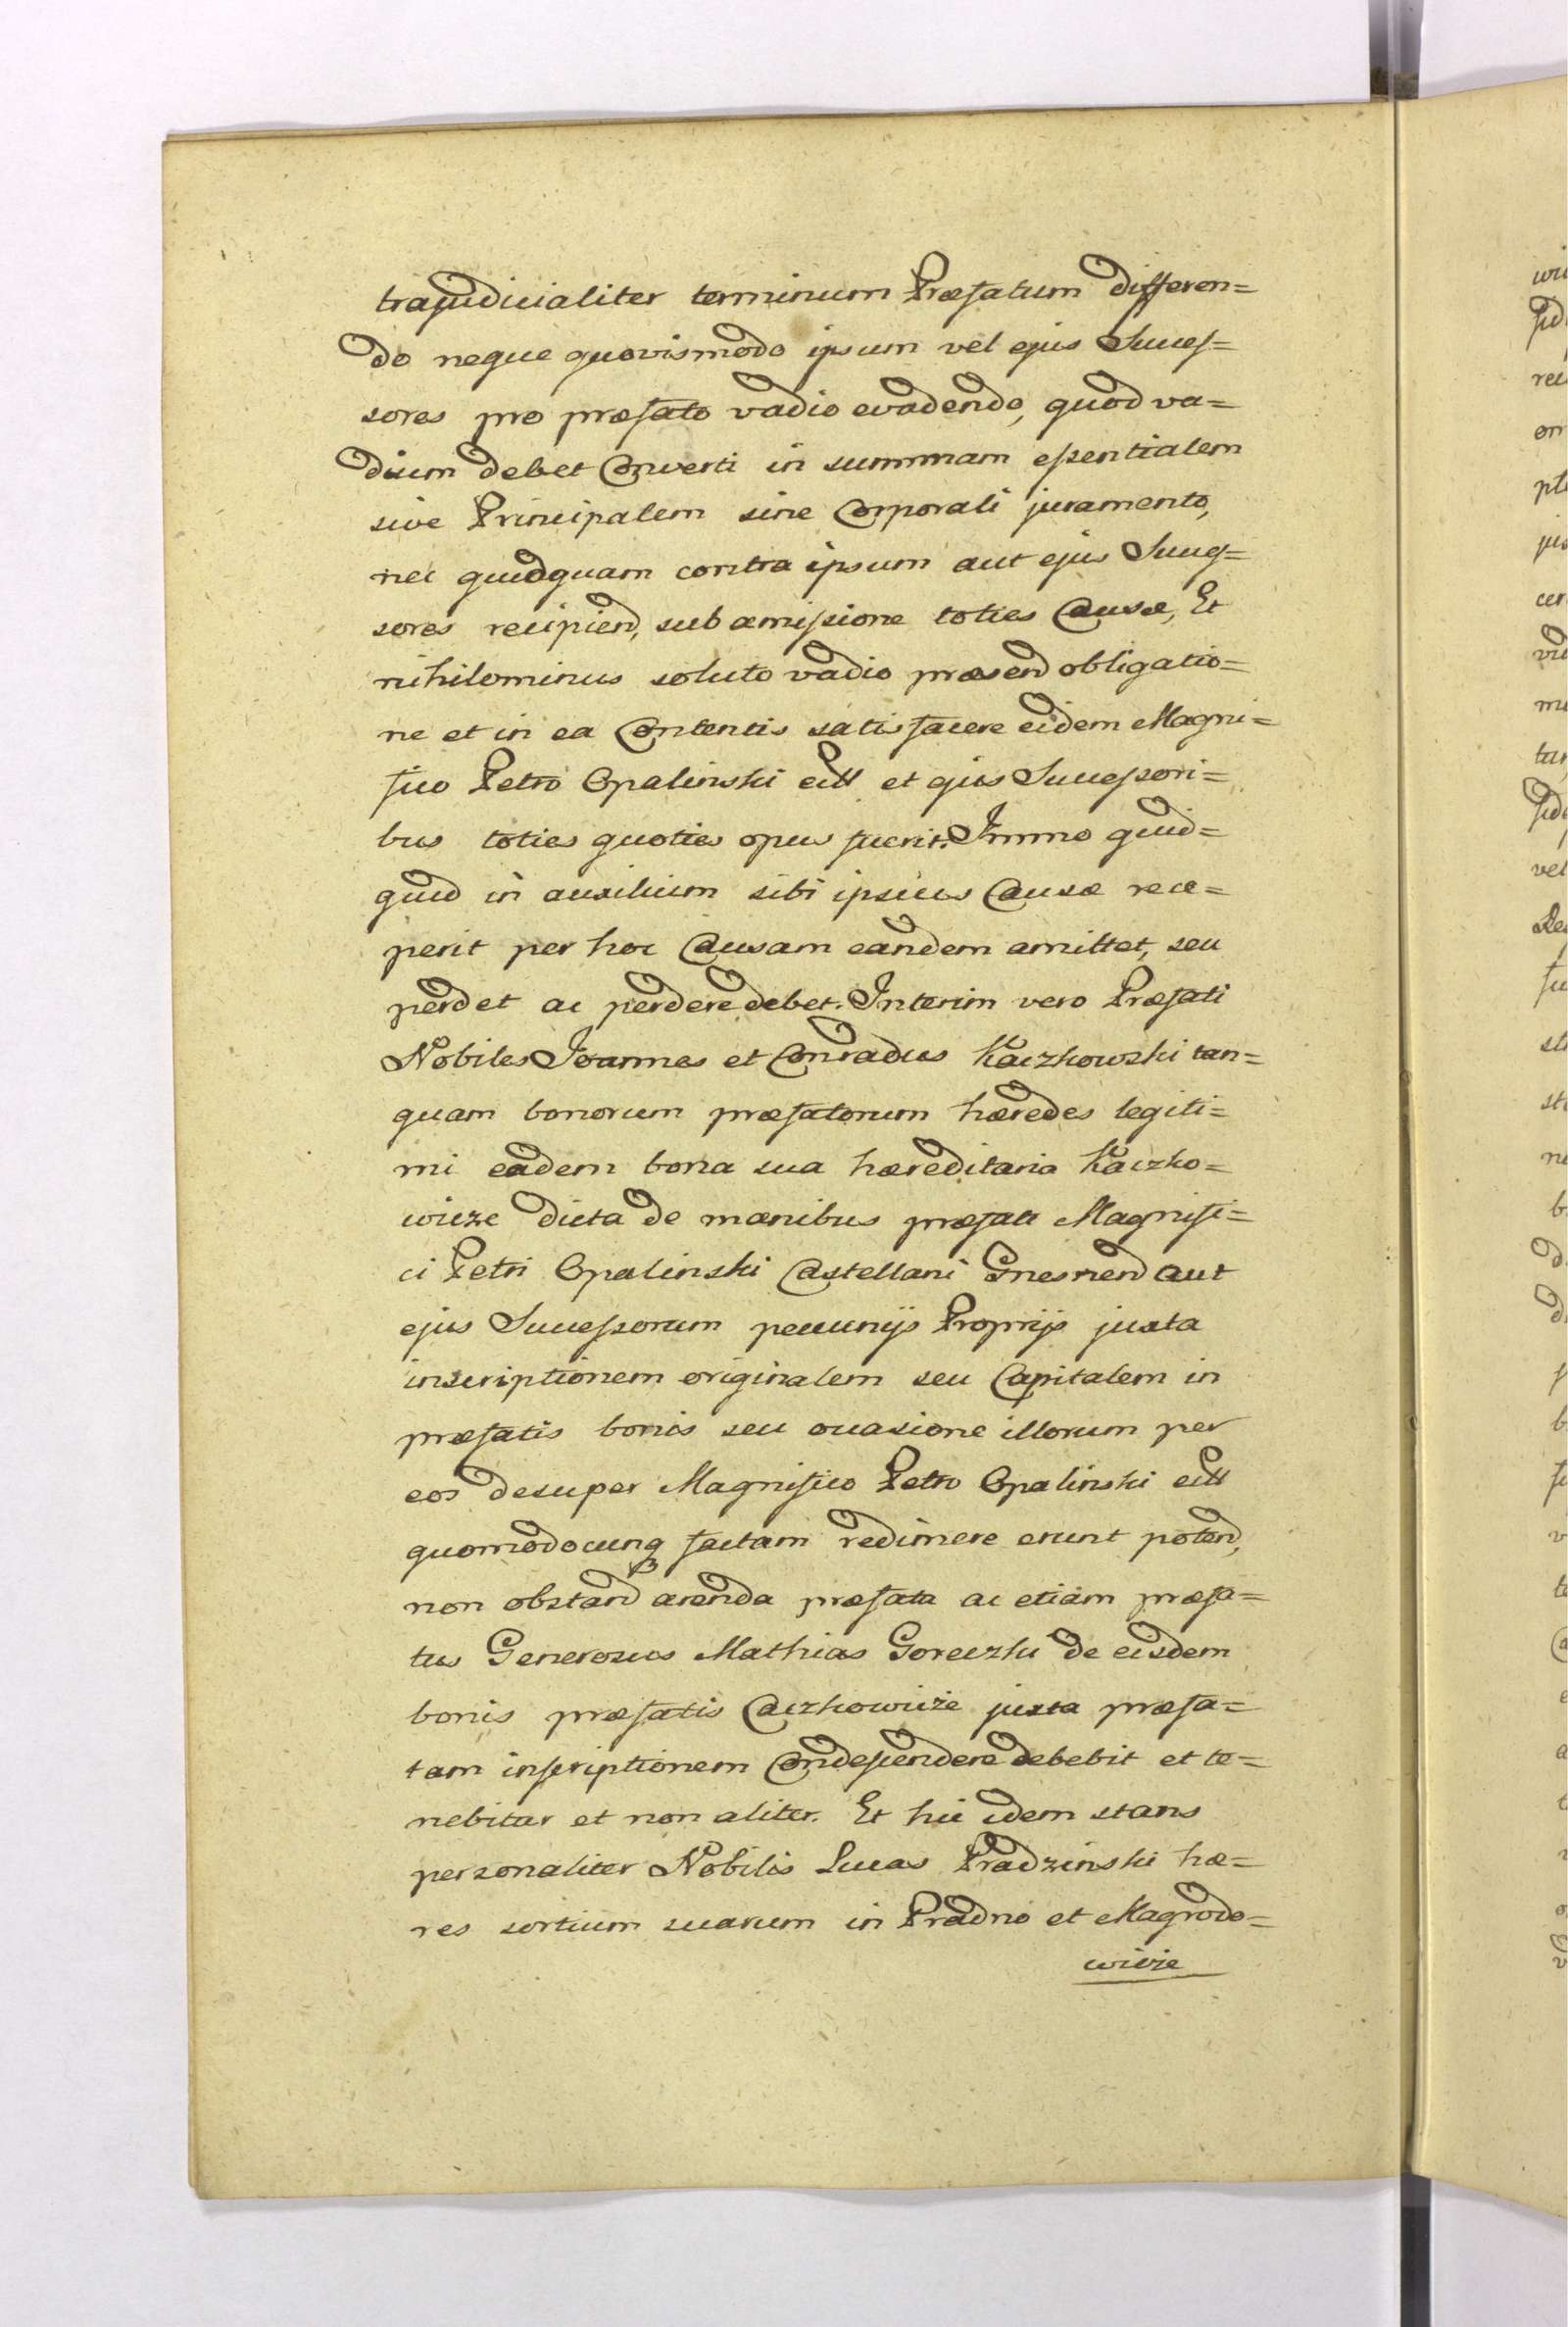 trajudicialiter terminum Præfatum differen=
do neque quovismodo ipsum vel ejus Succes=
sores pro præfato vadio evadendo, quod va=
dium debet Converti in summam essentialem
sive Principalem sine Corporali juramento,
nec quidquam contra ipsum aut ejus Succes=
sores recipiend, sub amissione toties Causæ, Et
nihilominus soluto vadio præsend obligatio=
ne et in ea Contentis satisfacere eidem Magni=
fico Petro Opalinski
et ejus Successori=
bus toties quoties opus fuerit. Immo quid=
quid in auxilium sibi ipsius Causæ rece=
perit per hoc Causam eandem amittet, seu
perdet ac perdere debet. Interim vero Præfati
Nobiles Joannes et Conradus Kaczkowski tan=
quam bonorum præfatorum hæredes legiti=
mi eadem bona sua hæreditaria Kaczko=
wicze dicta de manibus præfati Magnifi=
ci Petri Opalinski Castellani Gnesnend aut
ejus Successorum pecuniis Proprijs juxta
inscriptionem originalem seu Capitalem in
præfatis bonis seu occasione illorum per
eos desuper Magnifico Petro Opalinski
quomodocunq factam redimere erunt potend,
non obstand arenda præfata ac etiam præfa=
tus Generosus Mathias Goreczki de eisdem
bonis præfatis Caczkowicze juxta præfa=
tam inscriptionem Condescendere debebit et te=
nebitur et non aliter. Et hic idem stans
personaliter Nobilis Lucas Prądzinski hæ=
res sortium suarum in Prądno et Magrodo=
wicze